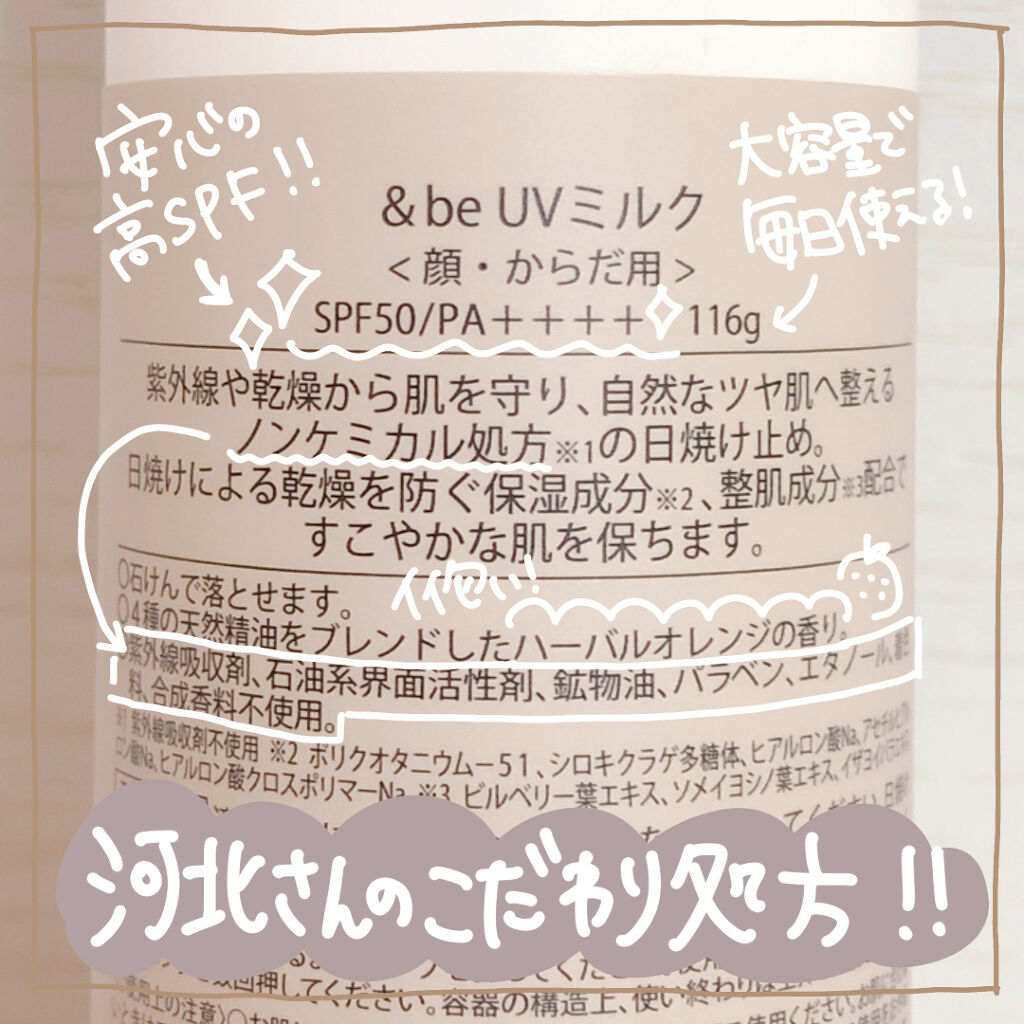 安心の
高SPF!!
大容量で
毎日使える!
&be UVミルク
<顔・からだ用>
SPF50/PA++++ 116g
紫外線や乾燥から肌を守り、自然なツヤ肌へ整える
ノンケミカル処方※1の日焼け止め。
日焼けによる乾燥を防ぐ保湿成分※2、整肌成分※3配合で
すこやかな肌を保ちます。
○石けんで落とせます。
○4種の天然精油をブレンドしたハーバルオレンジの香り。
紫外線吸収剤、石油系界面活性剤、鉱物油、パラベン、エタノール、着色
料、合成香料不使用。
紫外線吸収剤不使用 ※2 ポリクオタニウム-51、シロキクラゲ多糖体、ヒアルロン酸Na、アセチルヒアル
ロン酸Na、ヒアルロン酸クロスポリマーNa ※3 ビルベリー葉エキス、ソメイヨシノ葉エキス、イザヨイバラエキス
てください。日焼
河北さんのこだわり処方!!
回押してください。容器の構造上、使い終わりは
使用上の注意〉○お肌